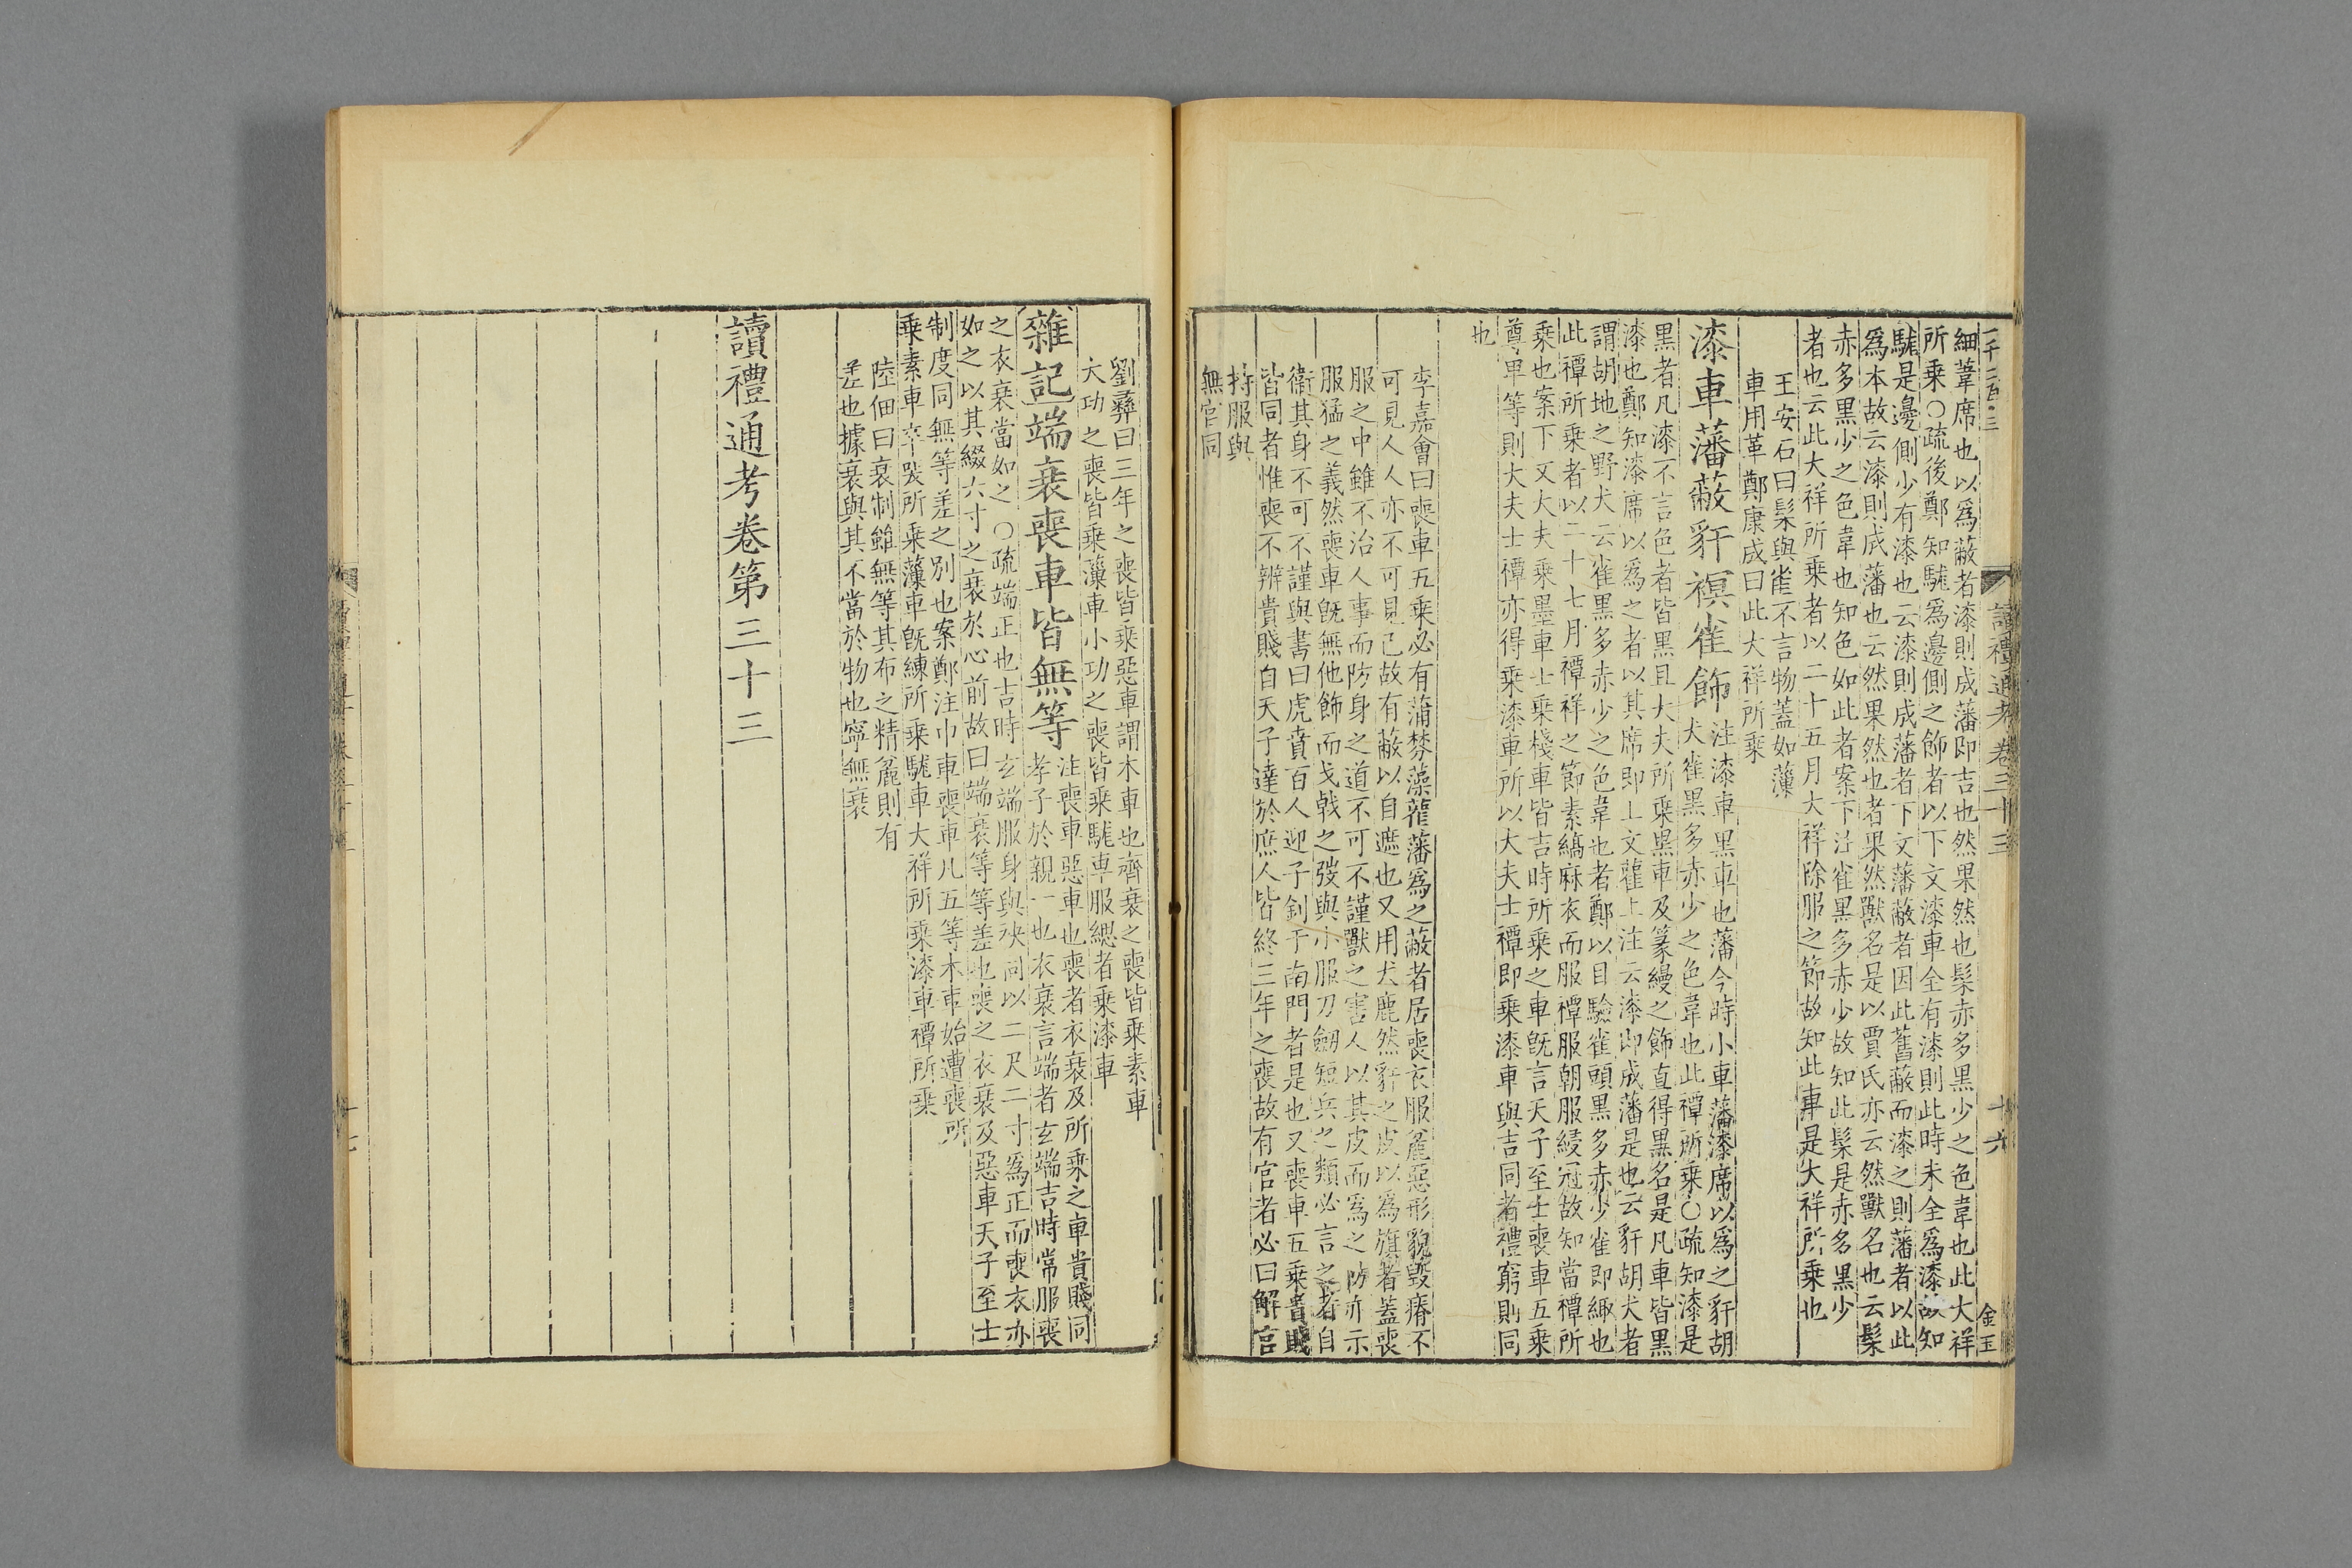 一千二百三
讀禮通考卷三十三
十六
金玉
細葦席也以爲蔽者漆則成藩即吉也然果然也髹赤多黑少之色韋也此大祥
所乗○疏後鄭知駹爲邊側之飾者以下文漆車全有漆則此時未全爲漆故知
駹是邊側少有漆也云漆則成藩者下文藩蔽者因此舊蔽而漆之則藩者以此
爲本故云漆則成藩也云然果然也者果然獸名是以賈氏亦云然獸名也云髹
赤多黑少之色韋也知色如此者案下注雀黑多赤少故知此髹是赤多黑少
者也云此大祥所乗者以二十五月大祥除服之節故知此車是大祥所乗也
王安石曰髹與雀不言物蓋如薻
車用革鄭康成曰此大祥所乗
漆車藩蔽豻𧜀雀飾
注漆車黑車也藩今時小車藩漆席以爲之豻胡
犬雀黑多赤少之色韋也此禫所乗○疏知漆是
黑者凡漆不言色者皆黑且大夫所乗黑車及篆縵之飾直得黑名是凡車皆黑
漆也鄭知漆席以爲之者以其席即上文雚上注云漆即成藩是也云豻胡犬者
謂胡地之野犬云雀黑多赤少之色韋也者鄭以目驗雀頭黑多赤少雀即緅也
此禫所乗者以二十七月禫祥之節素縞麻衣而服禫服朝服綅冠故知當禫所
乗也案下文大夫乗墨車士乗棧車皆吉時所乗之車旣言天子至士喪車五乗
尊卑等則大夫士禫亦得乗漆車所以大夫士禫即乗漆車與吉同者禮窮則同
也
李嘉會曰喪車五乗必有蒲棼薻雚藩爲之蔽者居喪衣服麄惡形貌毀瘠不
可見人人亦不可見已故有蔽以自遮也又用犬鹿然豻之皮以爲旗者蓋喪
服之中雖不治人事而防身之道不可不謹獸之害人以其皮而爲之防亦示
服猛之義然喪車旣無他飾而戈戟之弢與小服刀劒短兵之類必言之者自
衞其身不可不謹與書曰虎賁百人迎子釗于南門者是也又喪車五乗貴賤
皆同者惟喪不辨貴賤自天子達於庶人皆終三年之喪故有官者必曰解官
持服與
無官同
劉彝曰三年之喪皆乗惡車謂木車也齊衰之喪皆乗素車
大功之喪皆乗薻車小功之喪皆乗駹車服緦者乗漆車
雜記端衰喪車皆無等
注喪車惡車也喪者衣衰及所乗之車貴賤同
孝子於親一也衣衰言端者玄端吉時常服喪
之衣衰當如之○疏端正也吉時玄端服身與袂同以二尺二寸爲正而喪衣亦
如之以其綴六寸之衰於心前故曰端衰等等差也喪之衣衰及惡車天子至士
制度同無等差之別也案鄭注巾車喪車凡五等木車始遭喪所
乗素車卒哭所乗薻車旣練所乗駹車大祥所乗漆車禫所乗
陸佃曰衰制雖無等其布之精麄則有
差也據衰與其不當於物也寧無衰
讀禮通考卷第三十三